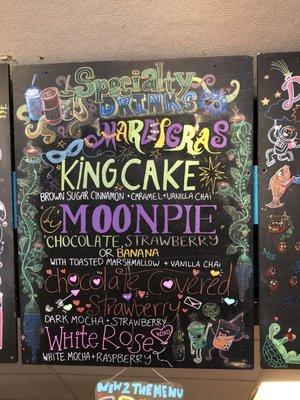 Specialty
DRINKS
MARDI GRAS
KING CAKE
BROWN SUGAR CINNAMON + CARAMEL + VANILLA CHAI
MOONPIE
CHOCOLATE, STRAWBERRY
OR BANANA
WITH TOASTED MARSHMALLOW + VANILLA CHAI
Chocolate Covered
Strawberry
DARK MOCHA + STRAWBERRY
White Rose
WHITE MOCHA + RASPBERRY
NEW 2 THE MENU